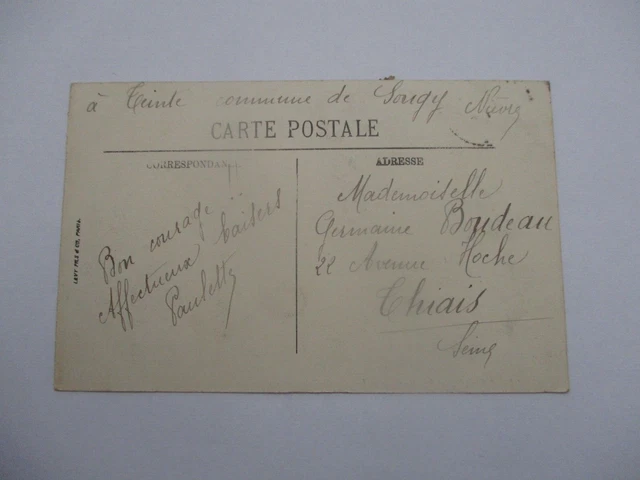 à Teinte commune de Sougy Nièvre
CARTE POSTALE
CORRESPONDANCE
Bon courage !!
Affectueux baisers
Paulette
LEVY FILS & CIE, PARIS.
ADRESSE
Mademoiselle
Germaine Boudeau
22 Avenue Hoche
Thiais
Seine